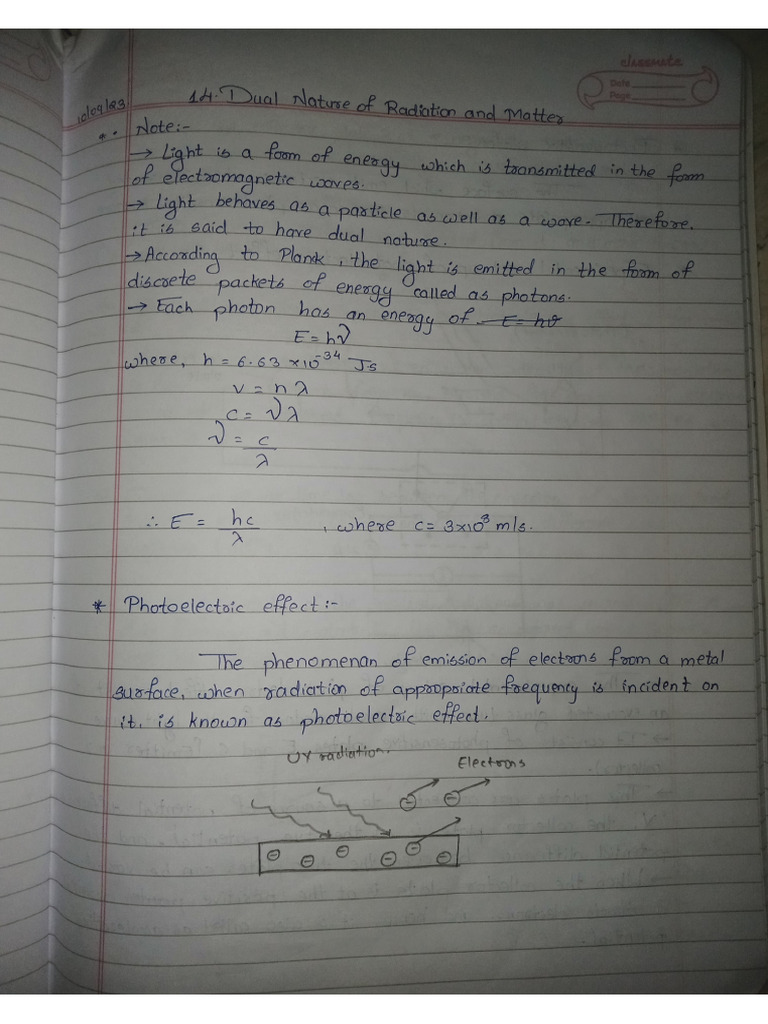 classmate
Date
Page
10/09/23
14. Dual Nature of Radiation and Matter
* • Note:-
→ Light is a form of energy which is transmitted in the form
of electromagnetic waves.
→ Light behaves as a particle as well as a wave. Therefore,
it is said to have dual nature.
→ According to Plank, the light is emitted in the form of
discrete packets of energy called as photons.
→ Each photon has an energy of E = hν
E = hν
where, h = 6.63 × 10⁻³⁴ J-s
v = n λ
c = ν λ
ν = c/λ
∴ E = hc/λ , where c = 3×10⁸ m/s.
* Photoelectric effect :-
The phenomenan of emission of electrons from a metal
surface, when radiation of appropriate frequency is incident on
it, is known as photoelectric effect.
UV radiation.
Electrons